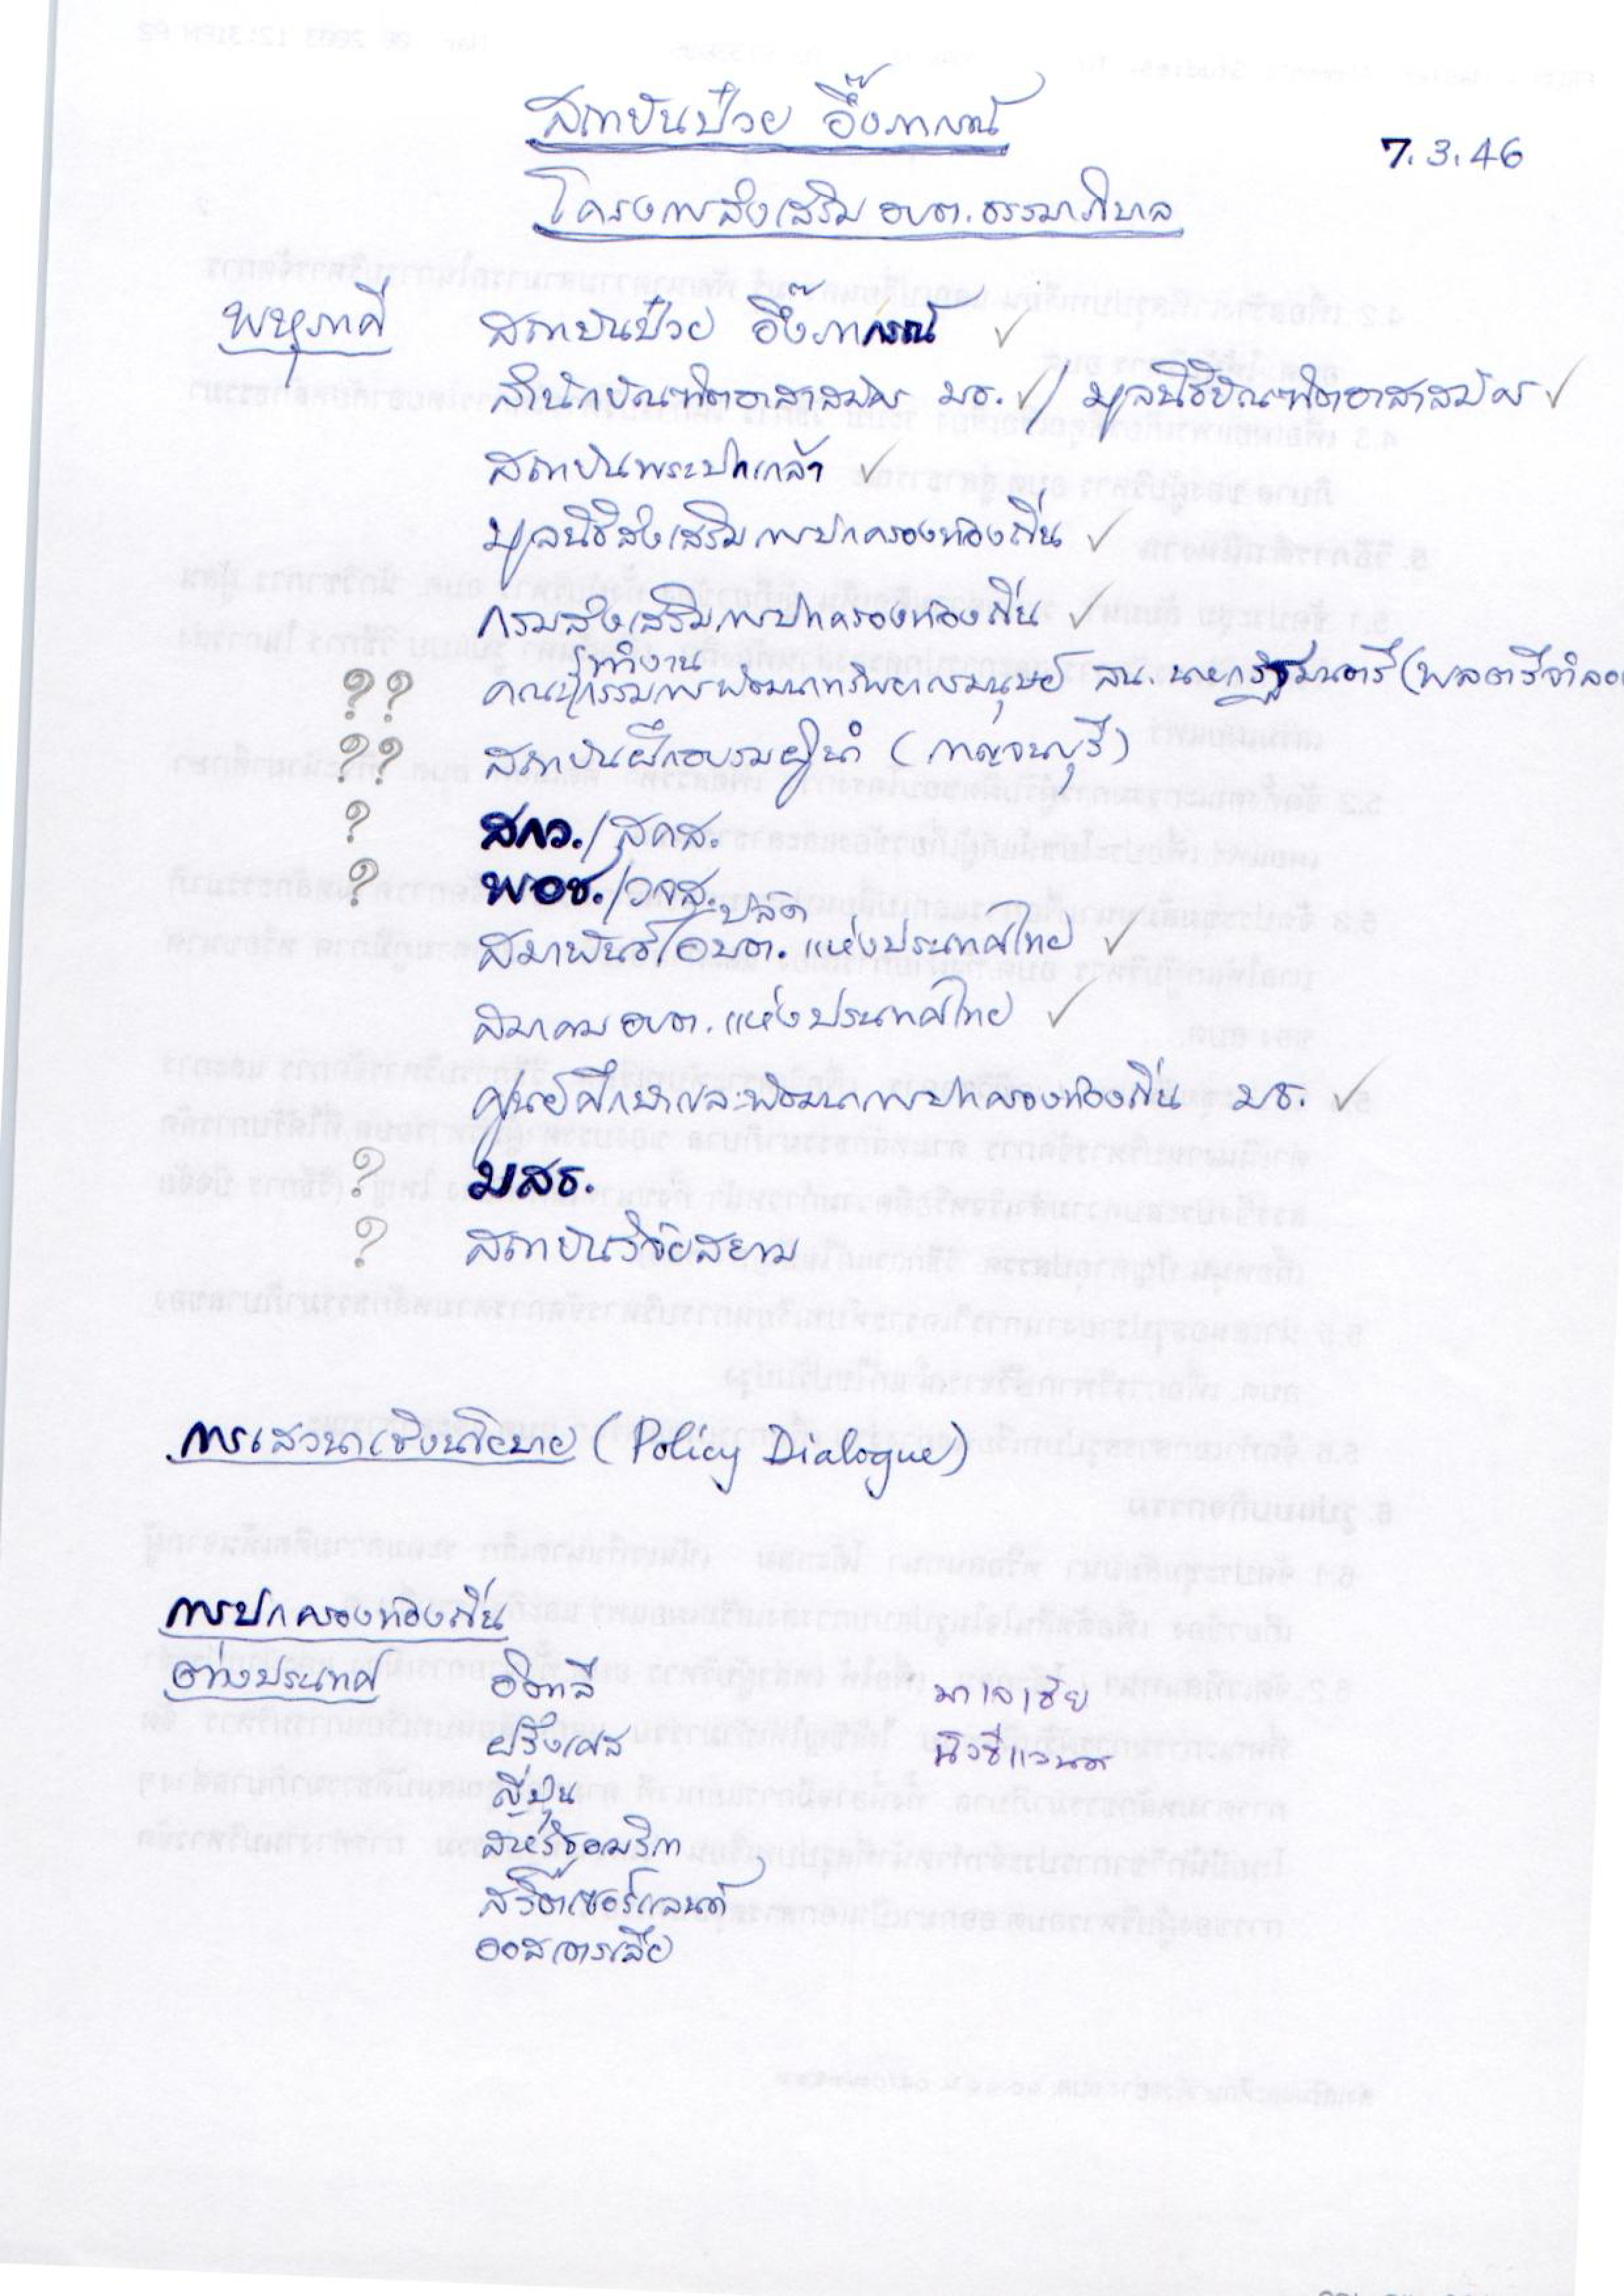 สถาบันป๋วย อึ๊งภากรณ์
7.3.46
โครงการส่งเสริม อบต. ธรรมาภิบาล
พหุภาคี สถาบันป๋วย อึ๊งภากรณ์ ✓
สำนักบัณฑิตอาสาสมัคร มธ. ✓ / มูลนิธิบัณฑิตอาสาสมัคร ✓
สถาบันพระปกเกล้า ✓
มูลนิธิส่งเสริมการปกครองท้องถิ่น ✓
กรมส่งเสริมการปกครองท้องถิ่น ✓
ทำงาน
?? คณะกรรมการพัฒนาทรัพยากรมนุษย์ สน. นายกรัฐมนตรี (พลตรีจำลอง
?? สถาบันฝึกอบรมผู้นำ (กาญจนบุรี)
? สกว./สคส.
? พอช./วจส.
ปลัด
สมาพันธ์ อบต. แห่งประเทศไทย ✓
สมาคม อบต. แห่งประเทศไทย ✓
ศูนย์ศึกษาและพัฒนาการปกครองท้องถิ่น มธ. ✓
? มสธ.
? สถาบันวิจัยสยาม
การเสวนาเชิงนโยบาย (Policy Dialogue)
การปกครองท้องถิ่น
ต่างประเทศ อิตาลี มาเลเซีย
ฝรั่งเศส นิวซีแลนด์
ญี่ปุ่น
สหรัฐอเมริกา
สวิตเซอร์แลนด์
ออสเตรเลีย